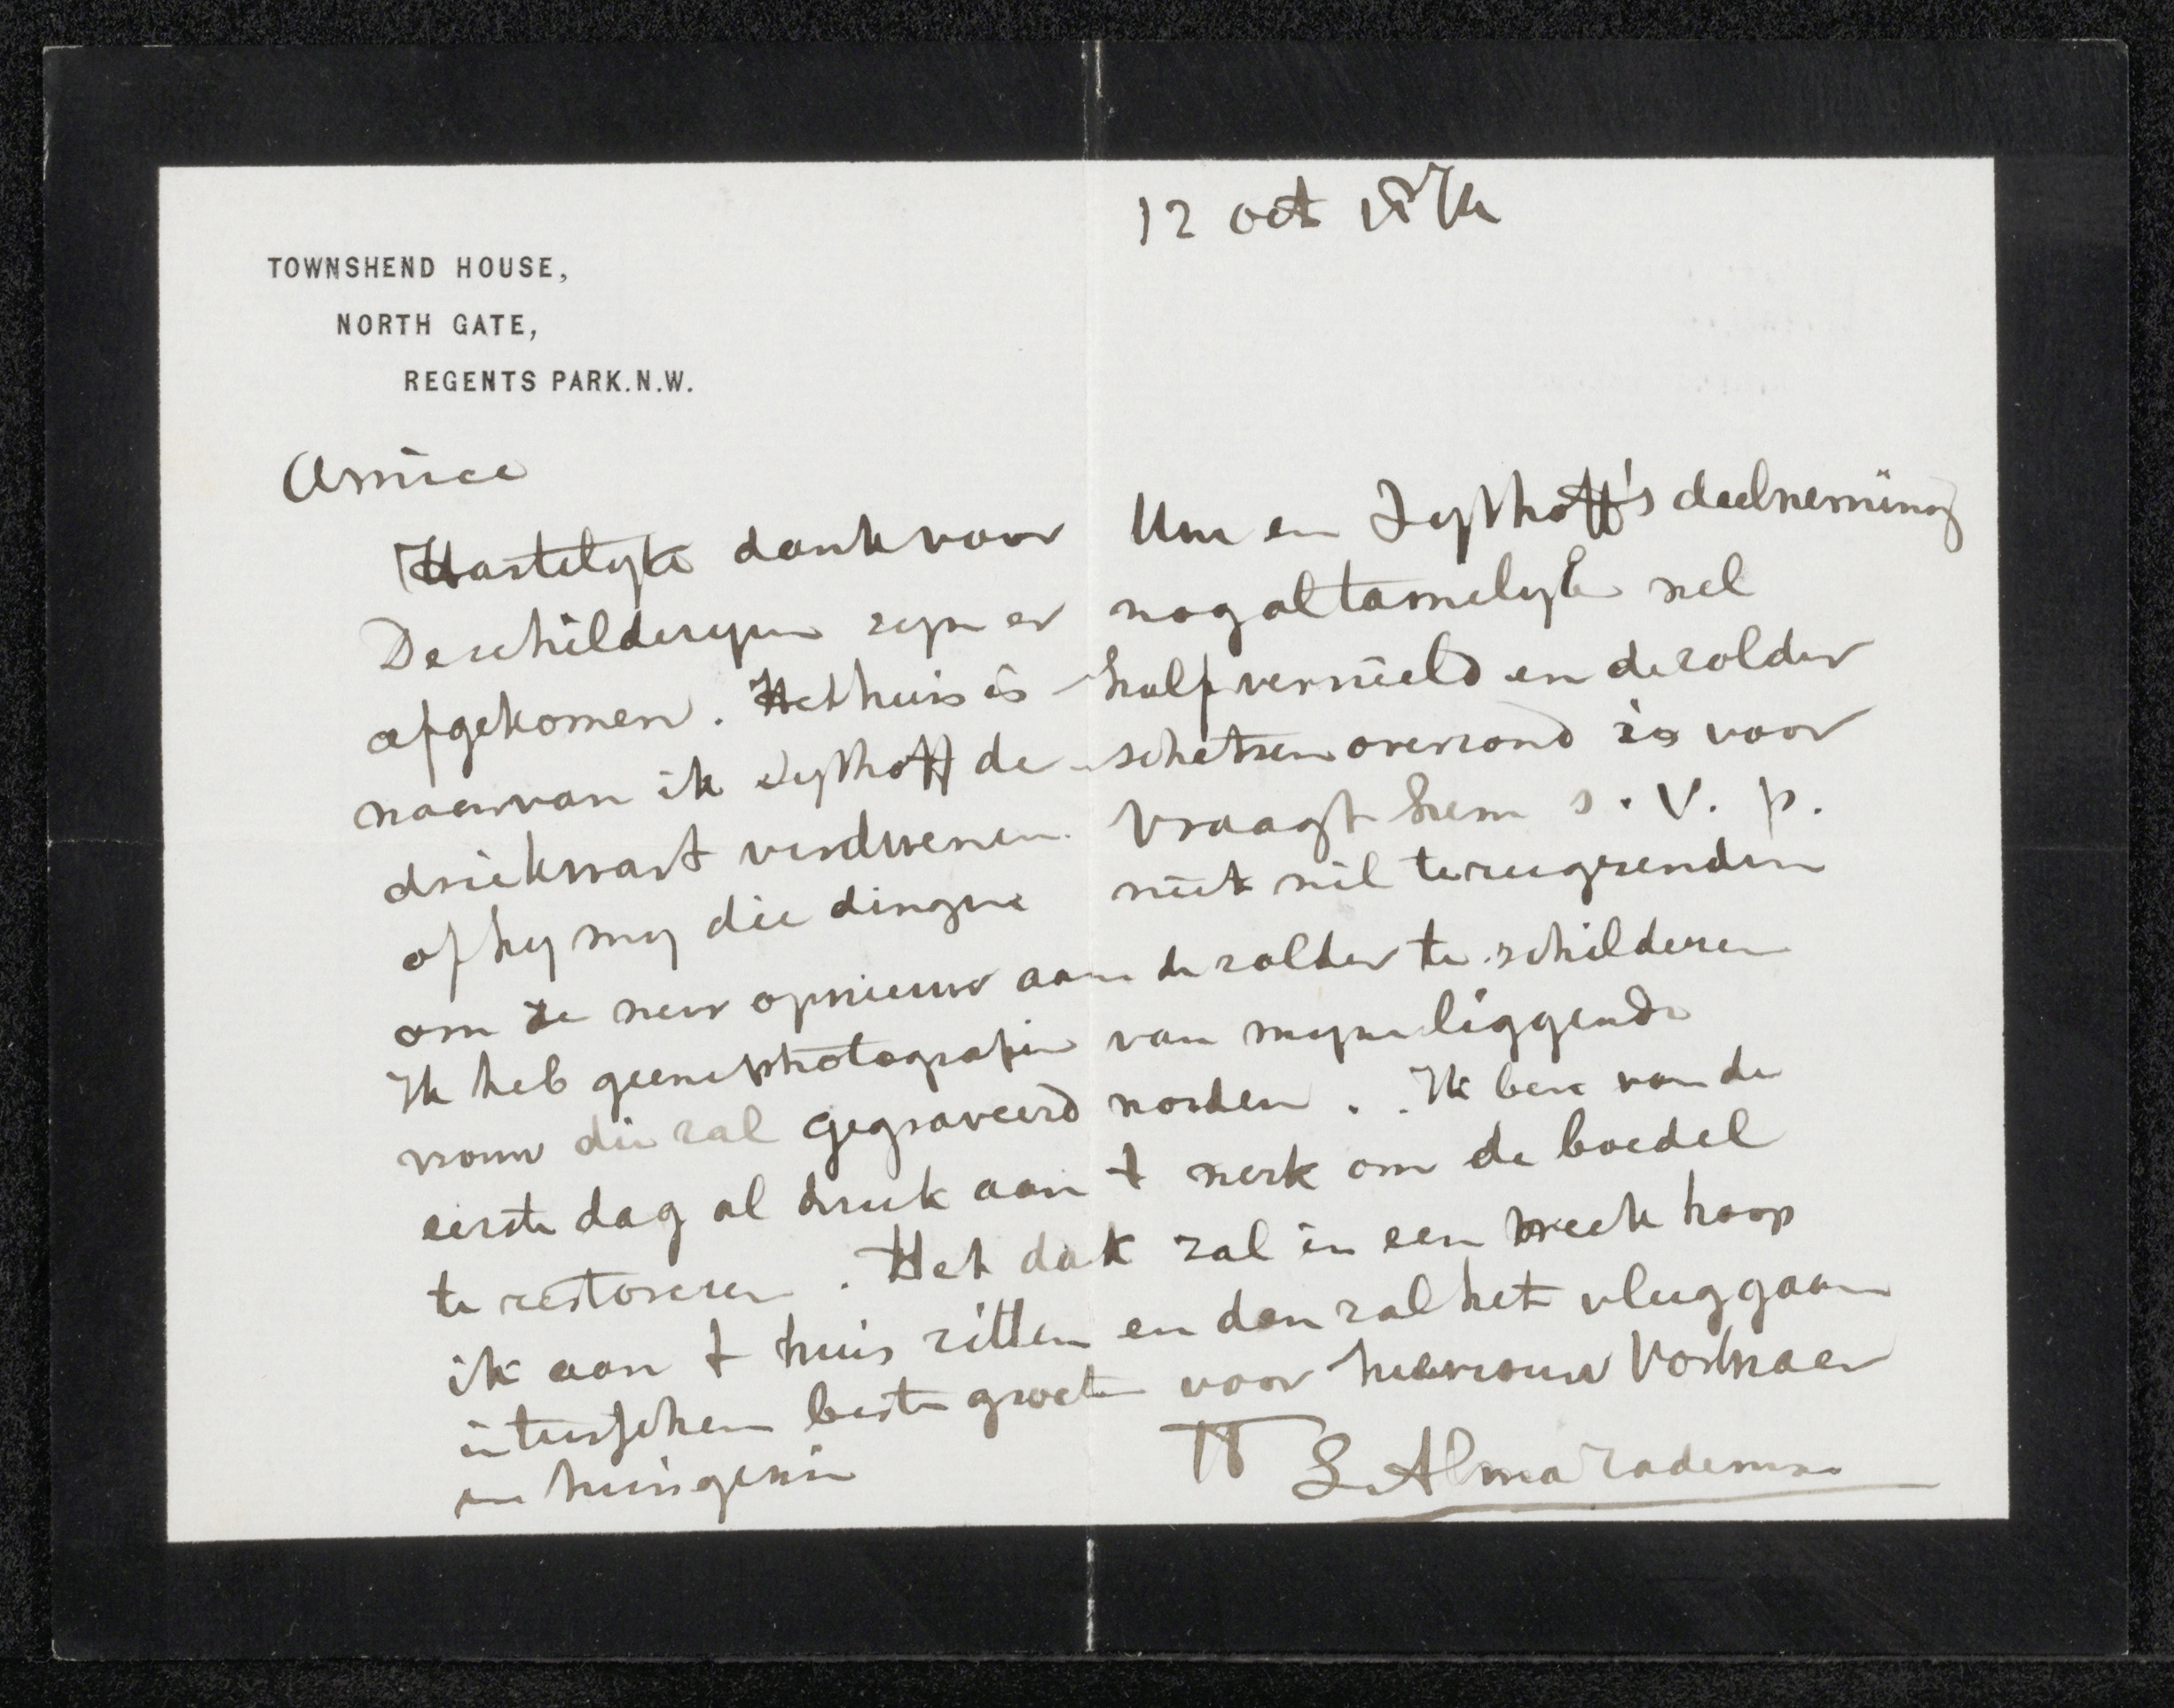 12 oct 1874
TOWNSHEND HOUSE,
NORTH GATE,
REGENTS PARK.N.W.
Amice
Hartelyke dank voor Uw en Sythoff's deelneming
De schilderyen zyn er nog al tamelyk wel
afgekomen. Het huis is half vernield en de zolder
waarvan ik Sythoff de schetsen overzond is voor
driekwart verdwenen. Vraagt hem s. v. p.
of hy my die dingen niet wil terugzenden
om ze weer opnieuw aan de zolder te schilderen
Ik heb geene photografie van myne liggende
vrouw die zal gegraveerd worden. Ik ben van de
eerste dag al druk aan t werk om de boedel
te restoreren. Het dak zal in een week hoop
ik aan t huis zitten en dan zal het vlug gaan
intusschen beste groeten voor Mevrouw Vosmaer
en huisgezin
TT L. Alma Tadema